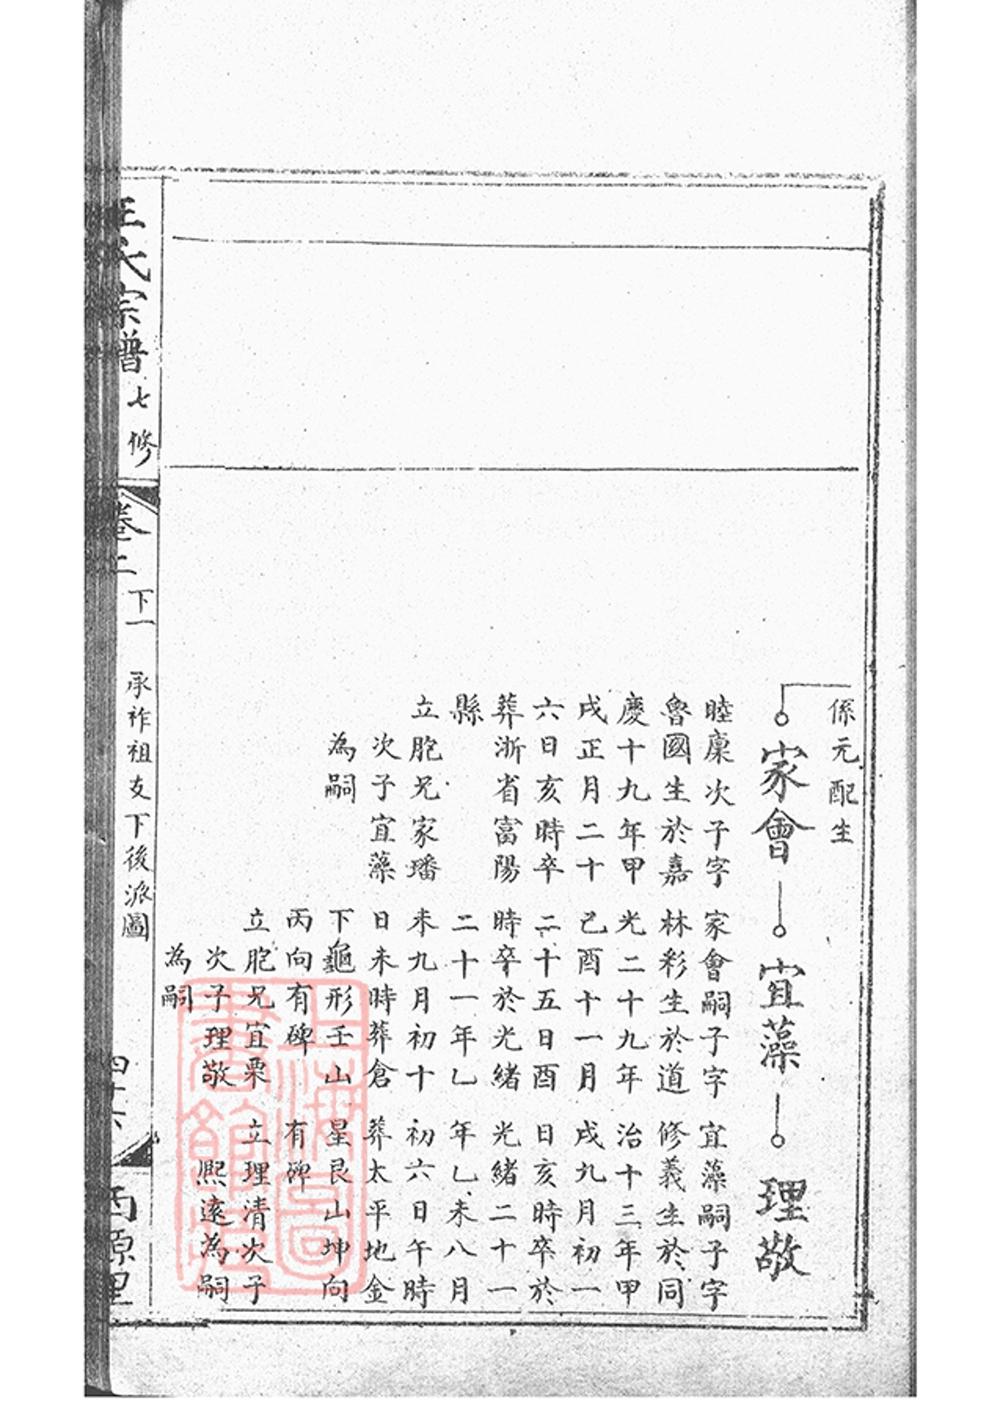 係元配生
家會
睦廩次子字
魯國生於嘉
慶十九年甲
戌正月二十
六日亥時卒
葬浙省富陽
縣
立胞兄家璠
次子宜藻
為嗣
宜藻
家會嗣子字
林彩生於道
光二十九年
己酉十一月
二十五日酉
時卒於光緒
二十一年乙
未九月初十
日未時葬倉
下龜形壬山
丙向有碑
立胞兄宜栗
次子理敬
為嗣
理敬
宜藻嗣子字
修義生於同
治十三年甲
戌九月初一
日亥時卒於
光緒二十一
年乙未八月
初六日午時
葬太平地金
星艮山坤向
有碑
立理清次子
熙遠為嗣
王氏宗譜 七修 卷二 下一 承祚祖支下後派圖 四十六 西源里
上海圖
書館藏